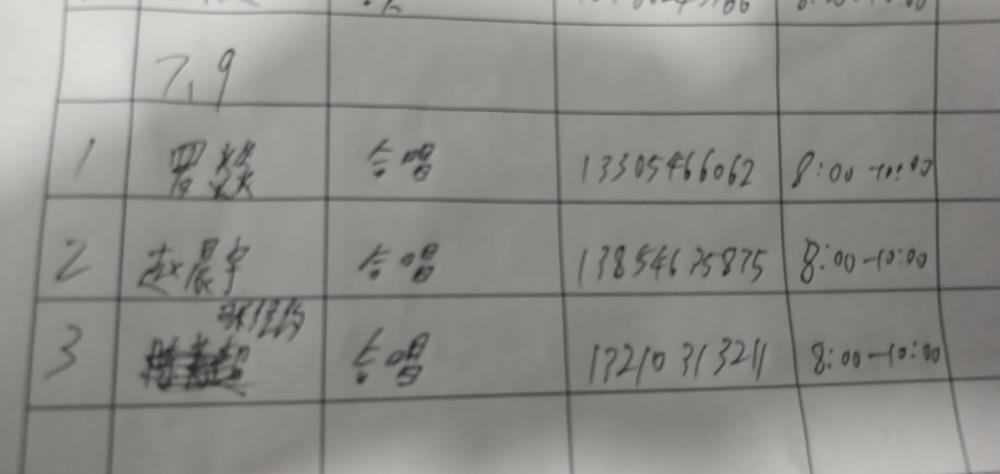 7.9
1 罗焱 合唱 13305466062 8:00-10:00
2 赵晨宇 合唱 13854675875 8:00-10:00
3 合唱 13210313211 8:00-10:00